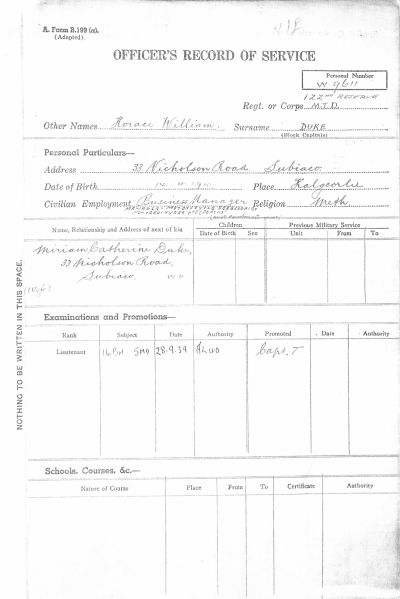 A. Form B.199 (a).
(Adapted).
OFFICER'S RECORD OF SERVICE
Personal Number
W 9611
122nd RESERVE
Regt. or Corps M.T.D.
Other Names Horace William. Surname DUKE
(Block Capitals)
Personal Particulars—
Address 33 Nicholson Road Subiaco.
Date of Birth Place Kalgoorlie
Civilian Employment Business Manager Religion Meth.
Name, Relationship and Address of next of kin
Children
Date of Birth Sex
Previous Military Service
Unit From To
Miriam Catherine Duke,
33 Nicholson Road,
Subiaco.
NOTHING TO BE WRITTEN IN THIS SPACE.
Examinations and Promotions—
Rank Subject Date Authority Promoted Date Authority
Lieutenant 28-9-39 Capt. T
Schools, Courses, &c.—
Nature of Course Place From To Certificate Authority